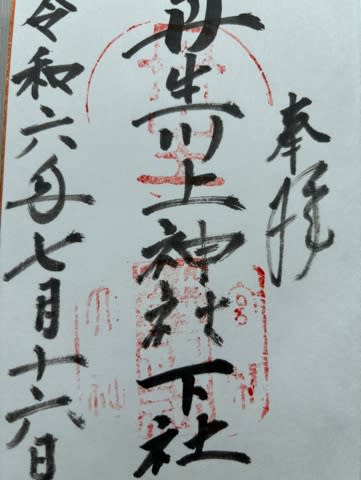 奉拝
丹生川上神社下社
令和六年七月十六日